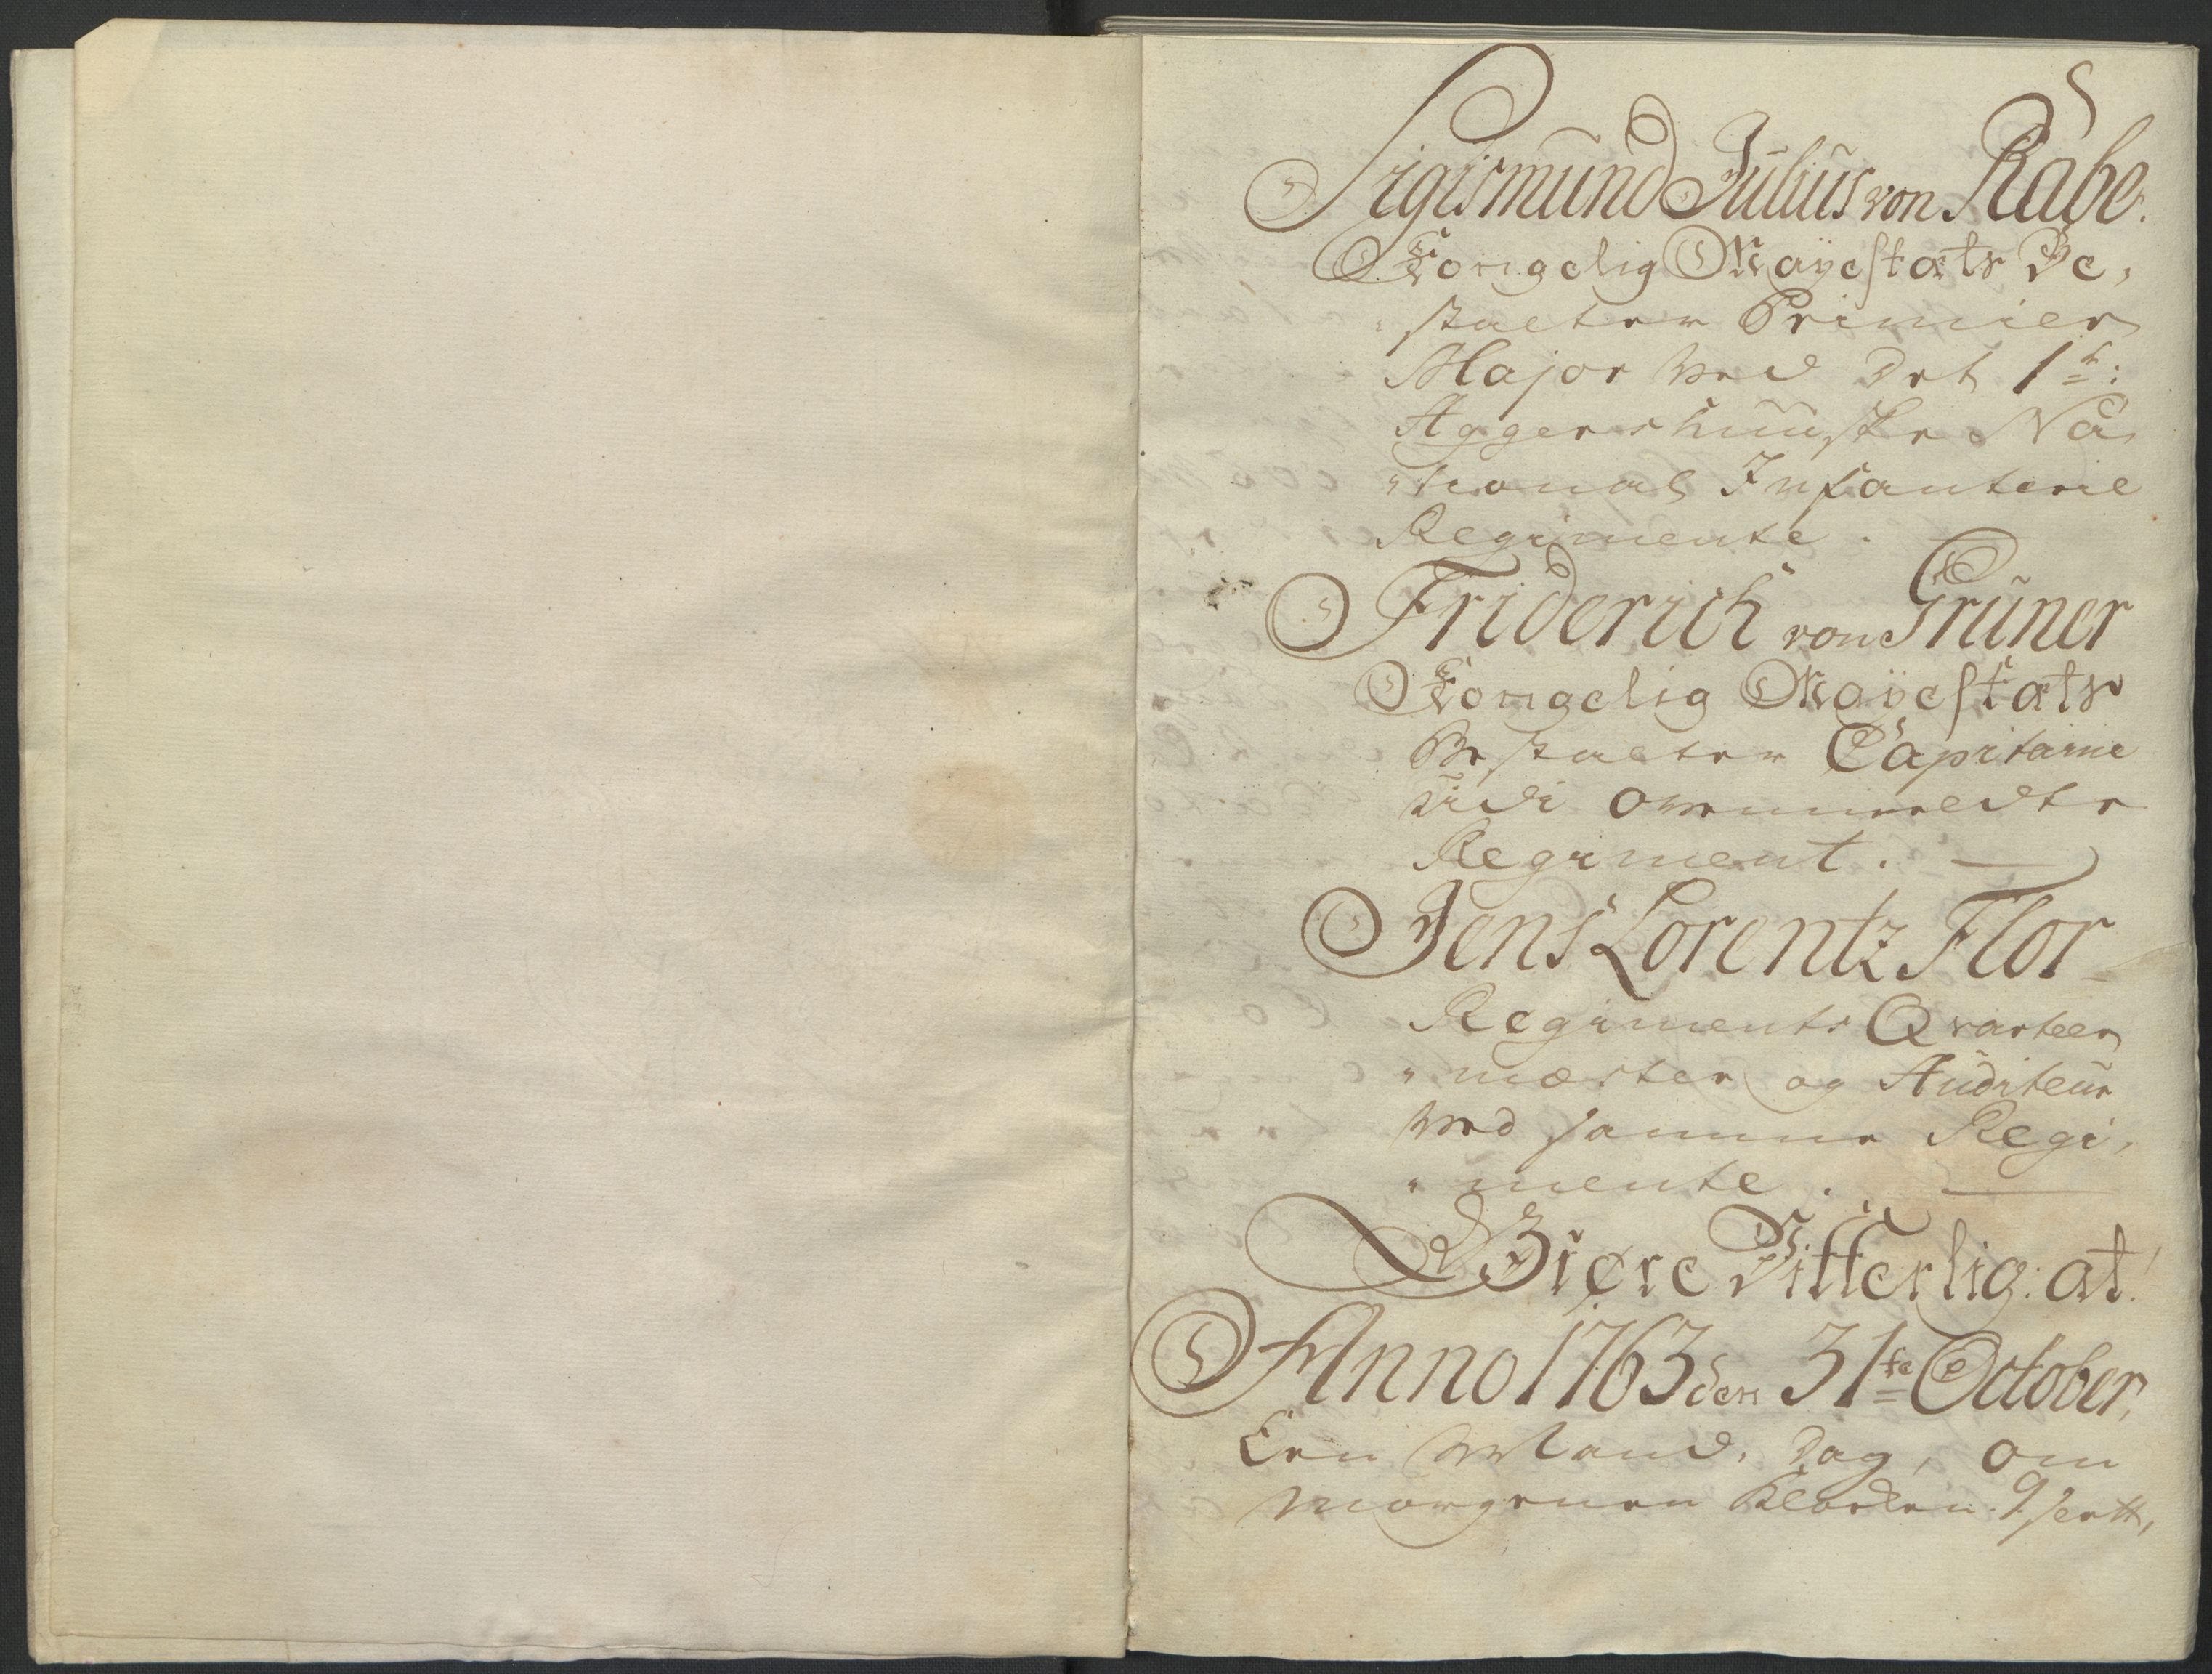 Sigismund Julius von Rabe.
Kongelig Mayestæts Be,
stalter Premier
Major ved det 1te:
Aggershuuske Na
"tional Infanterie
Regimente.
Friderich von Grüner
Kongelig Mayestæts
Bestalter Capitaine
udi ovenmeldte
Regiment.
Jens Lorentz Flor
Regiments Qvarteer
"mæster og Auditeur
ved samme Regi,
"mente.
Giøre Vitterlig: at
Anno 1763 den 31te October,
om
Morgenen Klocken 9 sentt,